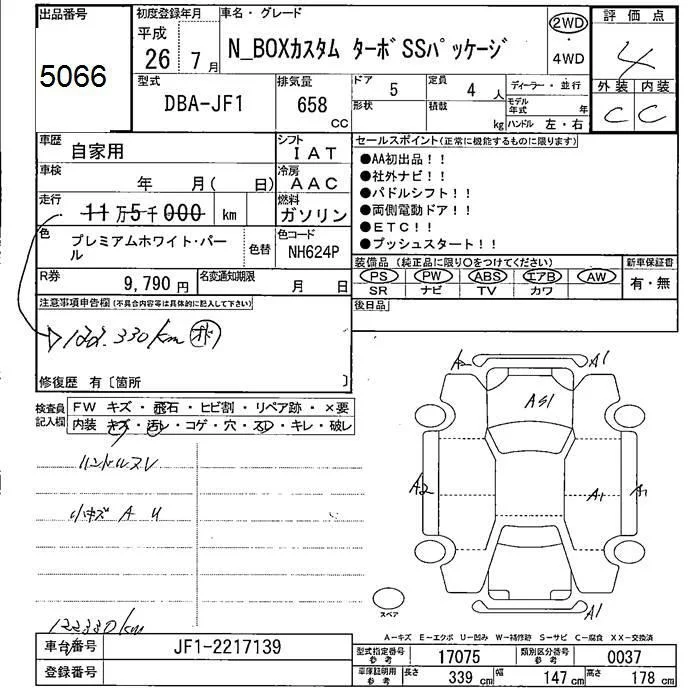 出品番号
5066
初度登録年月
平成
26 年 7 月
車名・グレード
N_BOXカスタム ターボ SSパッケージ
2WD
・
4WD
評価点
4
外装 内装
C C
型式
DBA-JF1
排気量
658
CC
ドア
5
定員
4 人
形状
積載
kg
ディーラー・並行
モデル年式 年
ハンドル 左・右
車歴
自家用
シフト
IAT
車検
年 月( 日)
冷房
AAC
走行
11万5千000 km
燃料
ガソリン
色
プレミアムホワイト・パール
色替
色コード
NH624P
R券
9,790 円
名変通知期限
月 日
セールスポイント(正常に機能するものに限ります)
●AA初出品!!
●社外ナビ!!
●パドルシフト!!
●両側電動ドア!!
●ETC!!
●プッシュスタート!!
装備品(純正品に限り〇をつけてください)
PS PW ABS エアB AW
SR ナビ TV カワ
新車保証書
有・無
後日品
注意事項申告欄(不具合内容等は具体的に記入して下さい)
122,330km
修復歴 有〔箇所 〕
検査員記入欄
FW キズ・飛石・ヒビ割・リペア跡・×要
内装 キズ・汚レ・コゲ・穴・スレ・キレ・破レ
ハンドルスレ
小キズ A U
A2 A1
AS1
A2
A1 A1
A1
スペア
122330km
A-キズ E-エクボ U-凹み W-補修跡 S-サビ C-腐食 XX-交換済
車台番号
JF1-2217139
登録番号
型式指定番号 参考
17075
類別区分番号 参考
0037
車庫証明用 参考
長さ 339 cm
幅 147 cm
高さ 178 cm